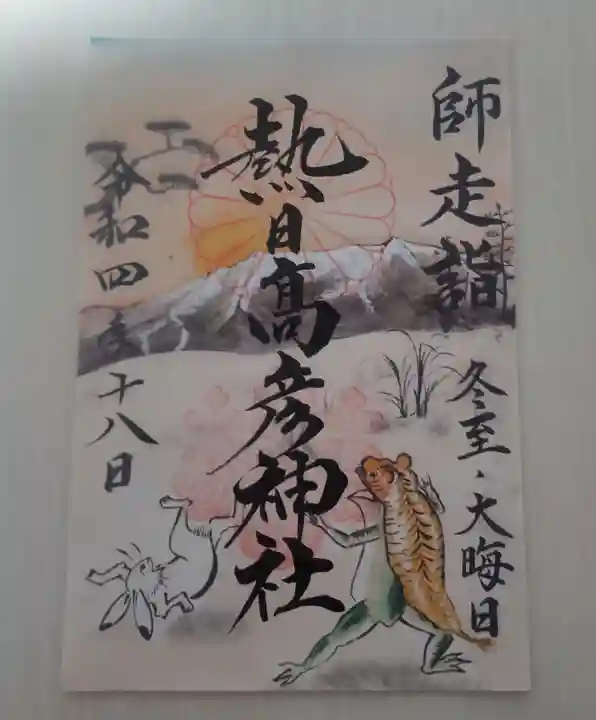 師走詣
冬至・大晦日
熱日高彦神社
令和四年十八日